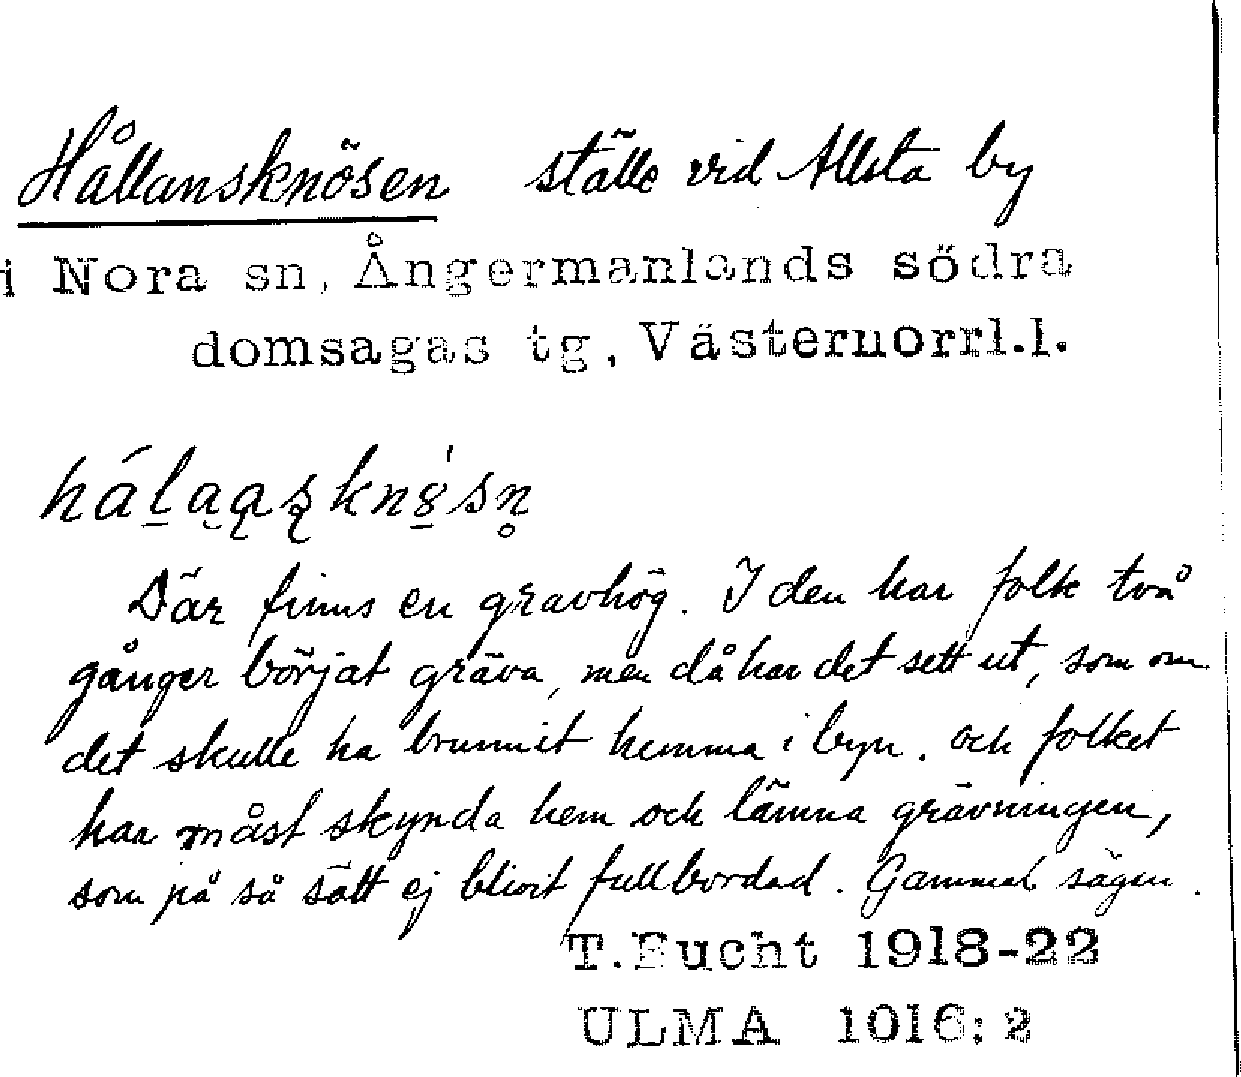 Hållansknösen ställe vid Allsta by
i Nora sn, Ångermanlands södra
domsagas tg, Västernorrl.l.
Där finns en gravhög. I den har folk två
gånger börjat gräva, men då har det sett ut, som om
det skulle ha brunnit hemma i byn. och folket
har måst skynda hem och lämna grävningen,
som på så sätt ej blivit fullbordad. Gammal sägen.
T. Bucht 1918-22
ULMA 1016:2